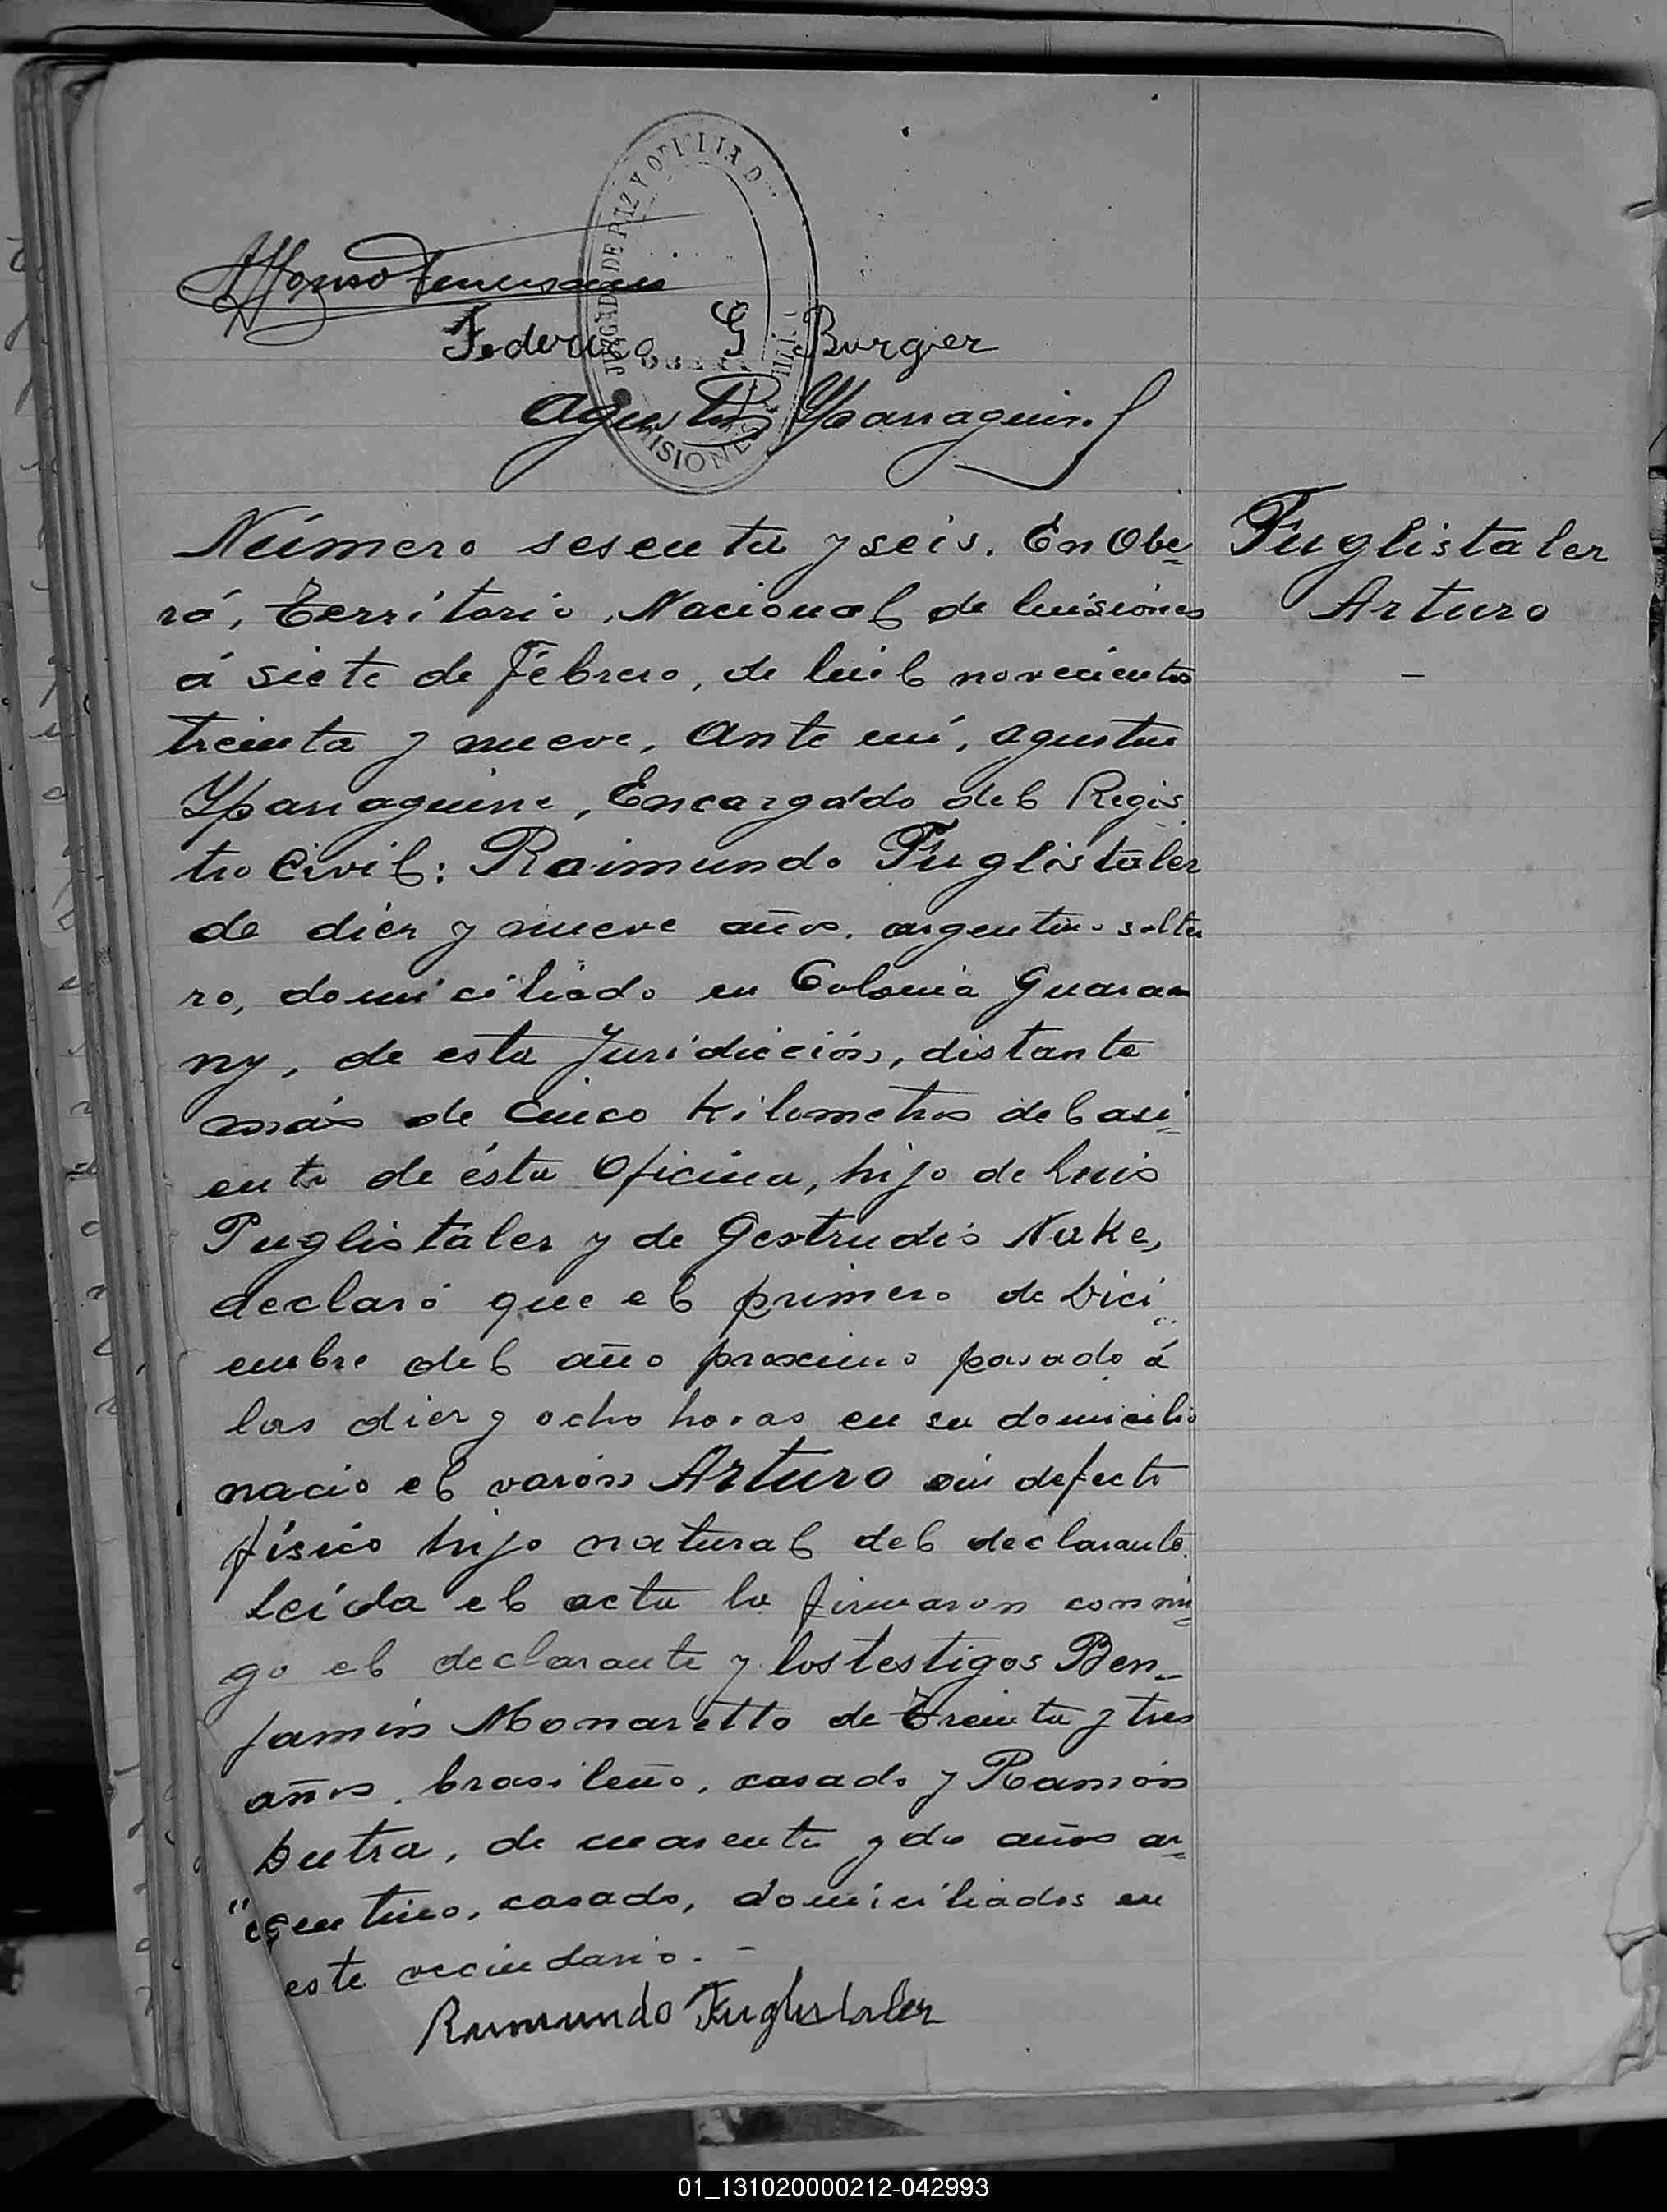 JUZGADO DE PAZ Y OFICINA D
MISIONES
Federico G Burger
Agustin Yparraguirre
Fuglistaler
Arturo
Número sesenta y seis. En Obe=
rá, Territorio, Nacional de Misiones
á siete de Febrero, de mil novecientos
treinta y nueve, Ante mí, Agustin
Yparraguirre, Encargado del Regis
tro Civil: Raimundo Fuglistaler
de diez y nueve años, argentino solte
ro, domiciliado en Colonia Guaran
ny, de esta Juridicción, distante
más de cinco kilometros del asi=
ento de ésta Oficina, hijo de Luis
Fuglistaler y de Gertrudis Nake,
declaró que el primero de Dici
embre del año proximo pasado á
las diez y ocho horas en su domicilio
nacio el varón Arturo sin defecto
físico hijo natural del declarante.
Leída el acta la firmaron conmi=
go el declarante y los testigos Ben=
jamín Monaretto de Treinta y tres
años, brasileño, casado y Ramón
Dutra, de cuarenta y dos años ar=
"gentino, casado, domiciliados en
este vecindario. -
Raimundo Fuglistaler
01_131020000212-042993